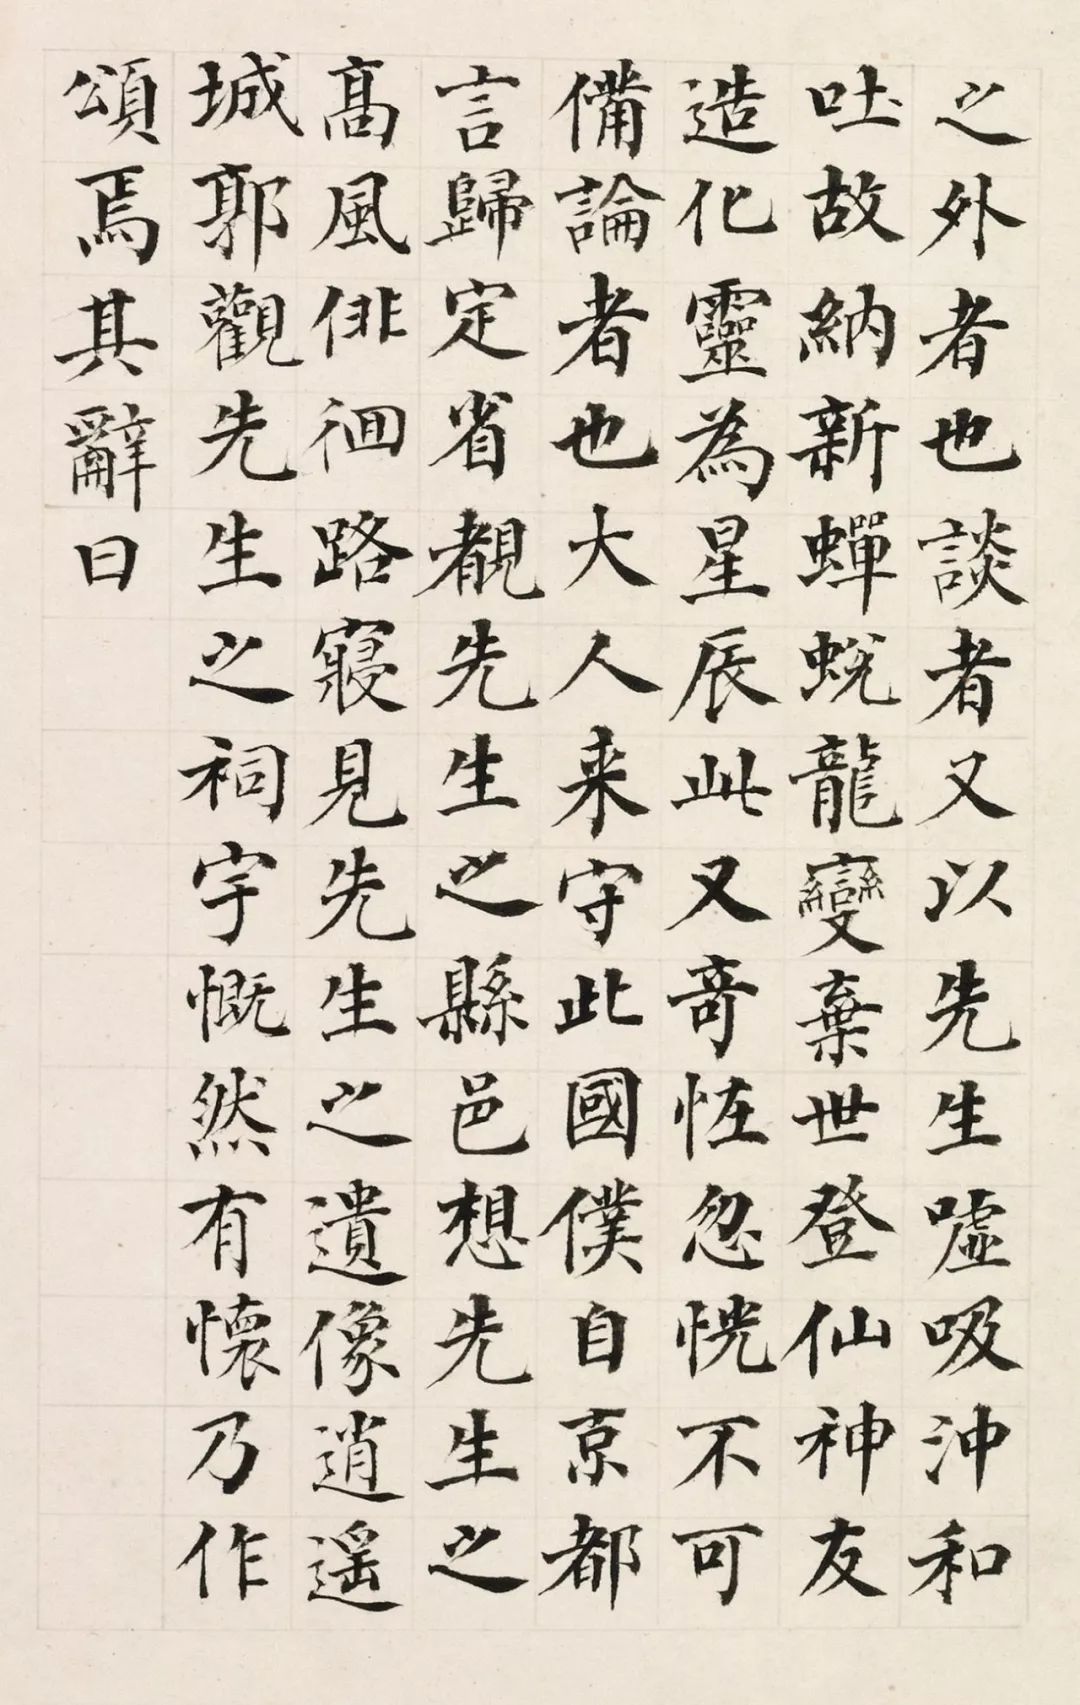 之外者也談者又以先生噓吸沖和
吐故納新蟬蛻龍變棄世登仙神友
造化靈為星辰此又奇恠忽恍不可
備論者也大人来守此國僕自京都
言歸定省覩先生之縣邑想先生之
髙風俳徊路寢見先生之遺像逍遥
城郭觀先生之祠宇慨然有懷乃作
頌焉其辭曰